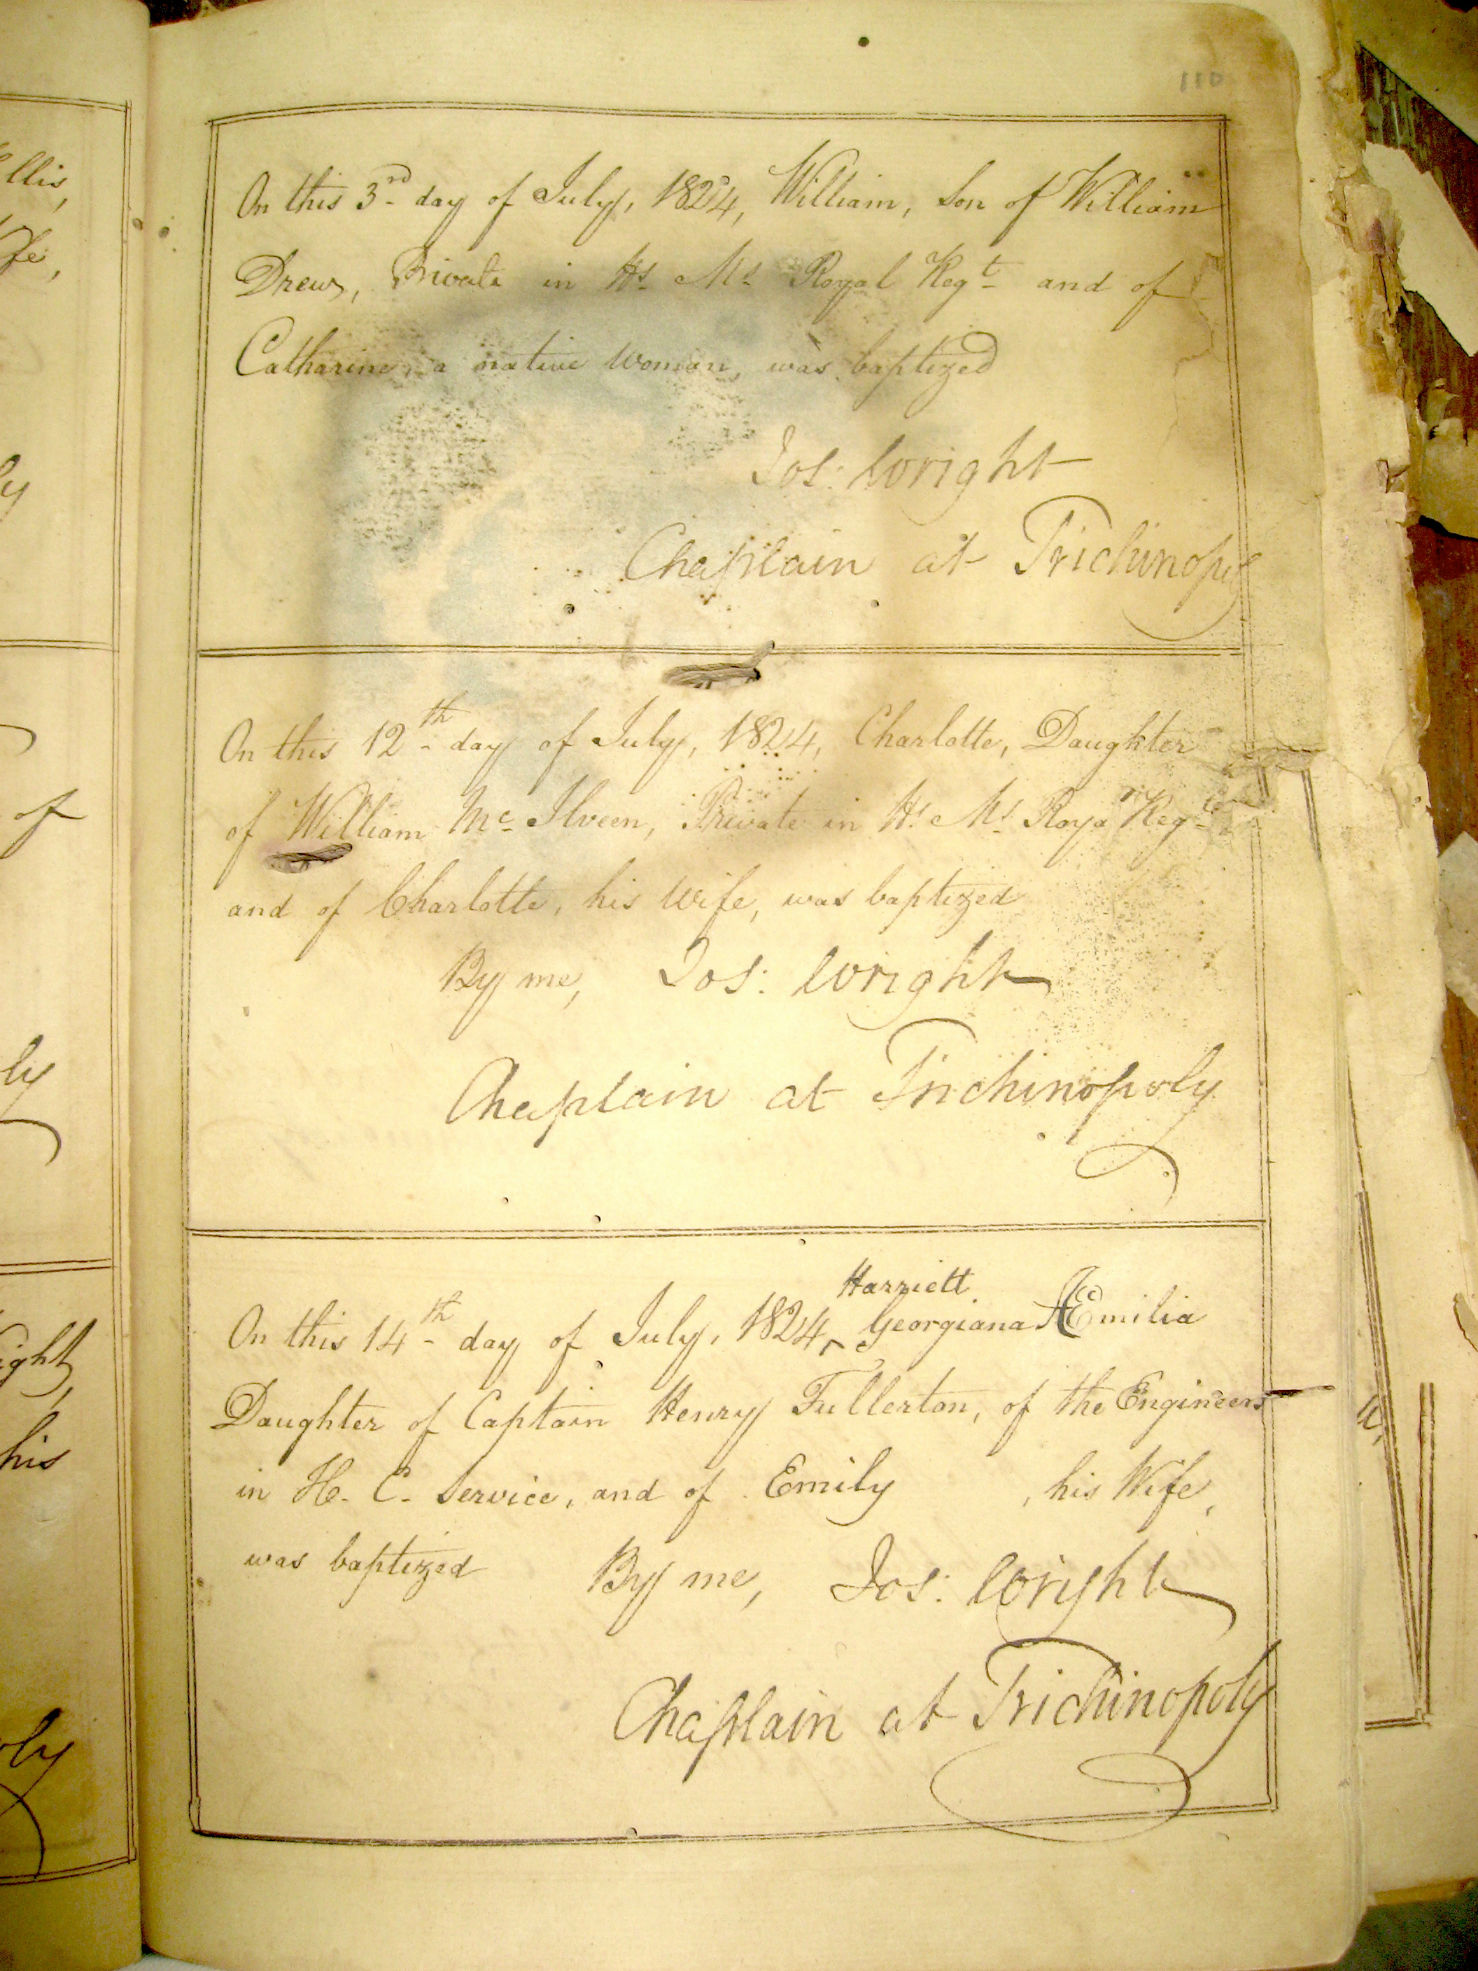 110
On this 3rd day of July, 1824, William, Son of William
Drew, Private in Hs. Ms. Royal Regt. and of
Catharine, a native Woman, was baptized
Jos: Wright
Chaplain at Trichinopoly
On this 12th day of July, 1824, Charlotte, Daughter
of William Mc. Ilveen, Private in Hs. Ms. Royal Regt.
and of Charlotte, his Wife, was baptized
By me, Jos: Wright
Chaplain at Trichinopoly
Harriett
On this 14th day of July, 1824, ^ Georgiana Æmilia
Daughter of Captain Henry Fullerton, of the Engineers
in H. C. Service, and of Emily , his Wife,
was baptized By me, Jos: Wright
Chaplain at Trichinopoly
llis,
fe,
ly
of
ly
ight,
his
oly